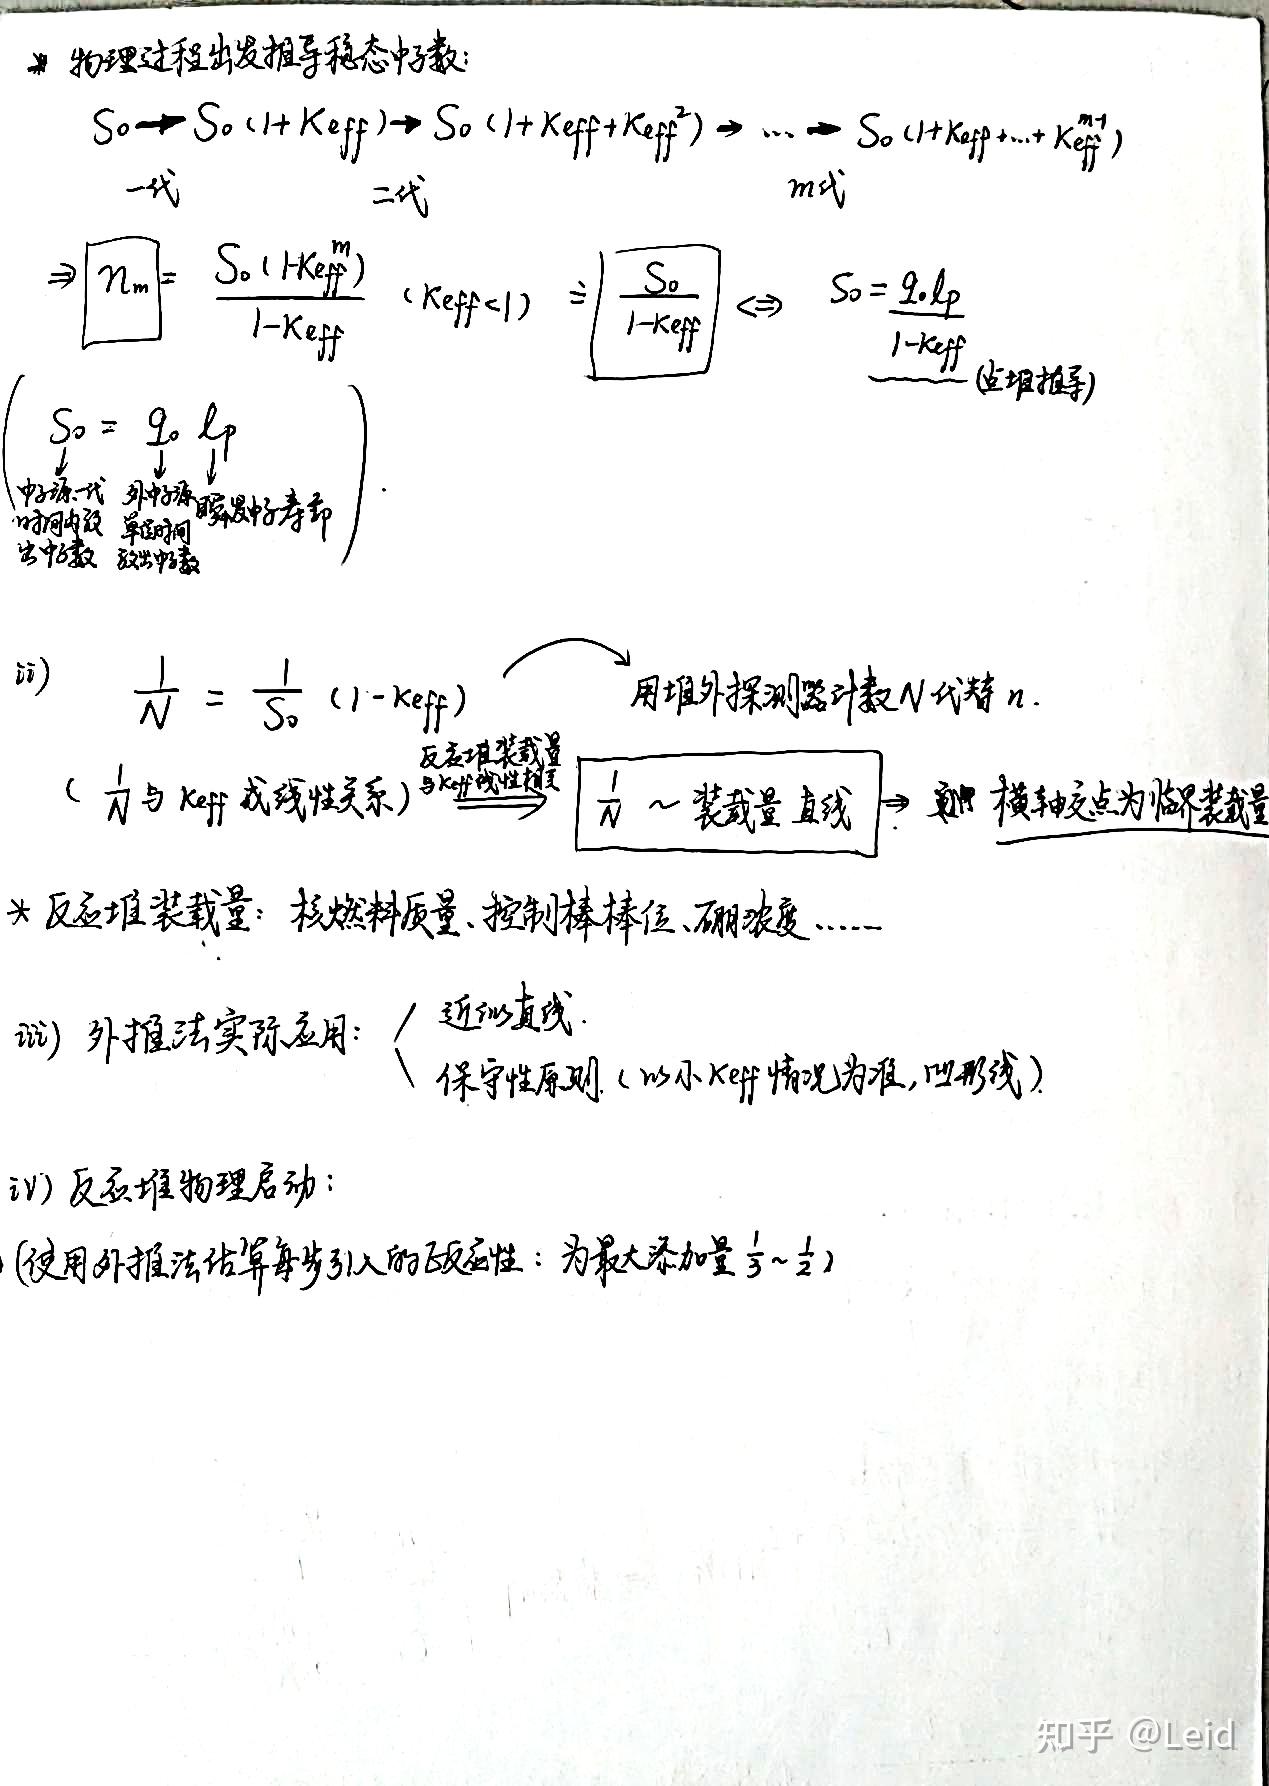 * 物理过程出发推导稳态中子数:
S₀ → S₀(1+Keff) → S₀(1+Keff+Keff²) → ... → S₀(1+Keff+...+Keff^(m-1))
一代 二代 m代
⇒ nₘ = S₀(1-Keff^m)/(1-Keff) (Keff<1) ≐ S₀/(1-Keff) ⇔ S₀ = q₀lp/(1-Keff)
(点堆推导)
(S₀ = q₀ lp)
中子源一代时间内放出中子数 外中子源单位时间放出中子数 瞬发中子寿命
ii) 1/N = 1/S₀ (1-Keff) 用堆外探测器计数N代替n.
(1/N与Keff成线性关系) 反应堆装载量与Keff线性相关 ⇒ 1/N ~ 装载量 直线 ⇒ 横轴交点为临界装载量
* 反应堆装载量: 核燃料质量、控制棒棒位、硼浓度……
iii) 外推法实际应用: 近似直线.
保守性原则.(以小Keff情况为准,凹形线).
iv) 反应堆物理启动:
(使用外推法估算每步引入的正反应性: 为最大添加量 1/3~1/2)
知乎 @Leid